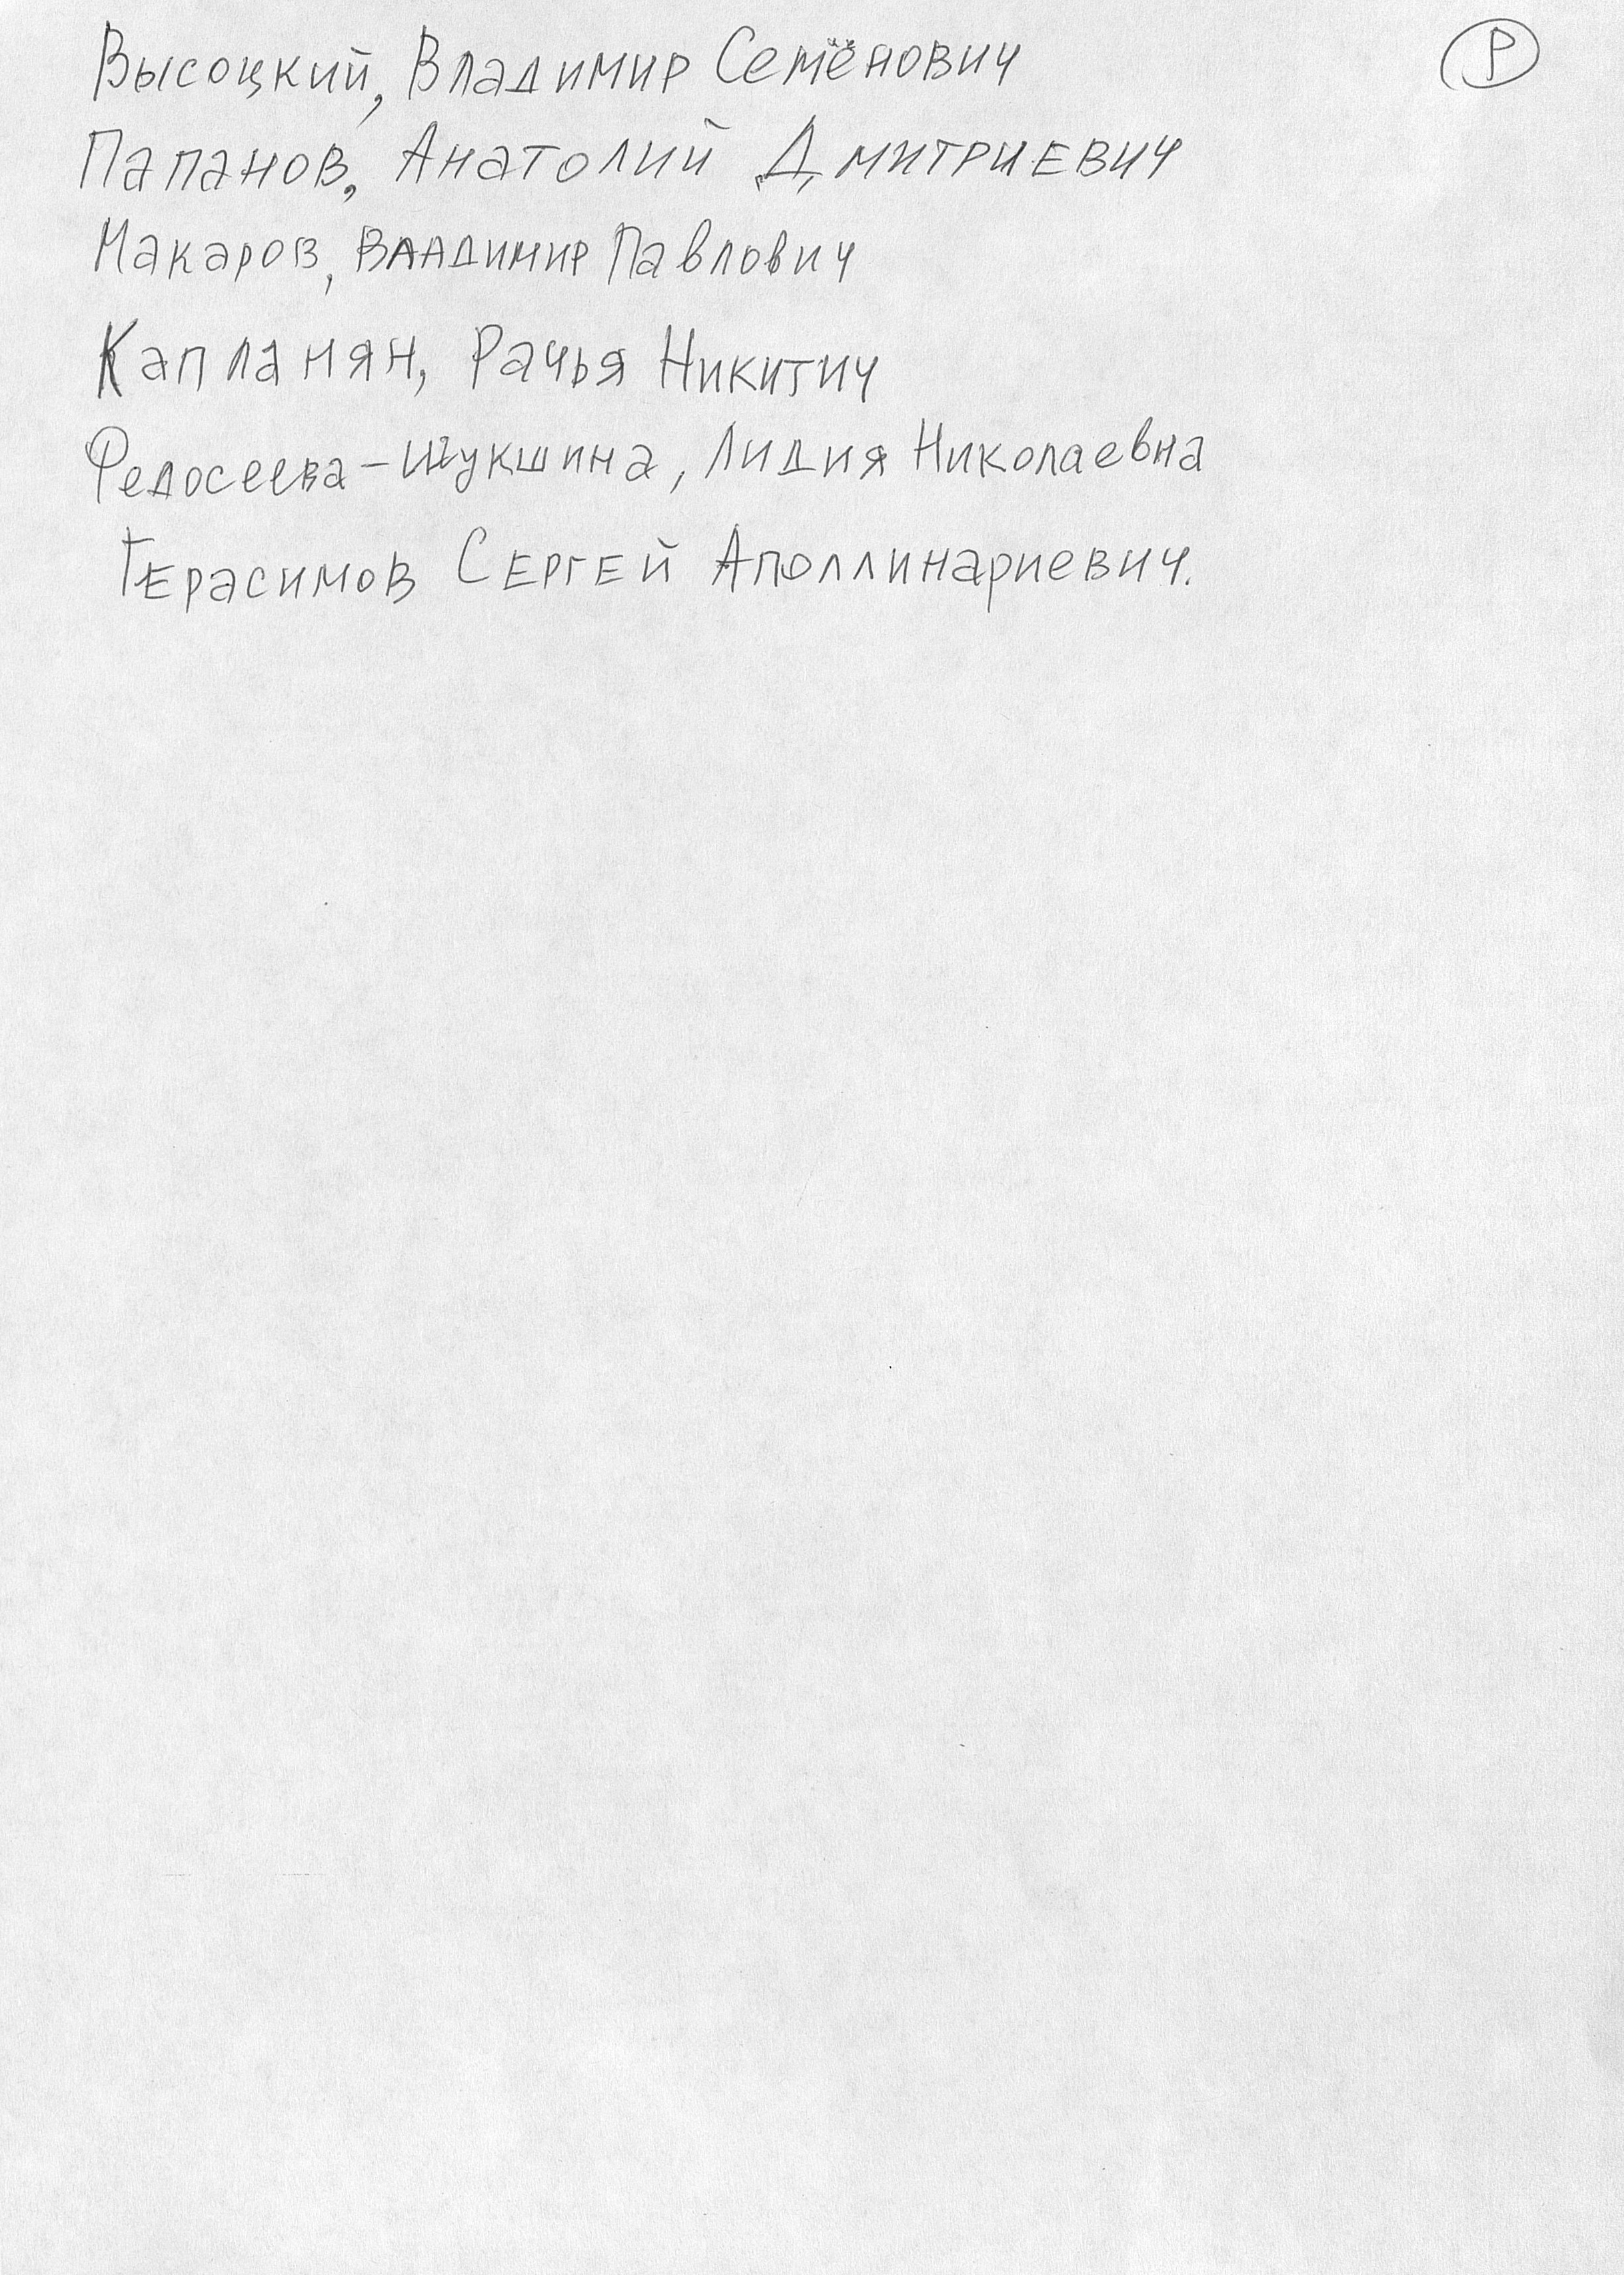 Высоцкий, Владимир Семёнович
Р
Папанов, Анатолий Дмитриевич
Макаров, Владимир Павлович
Капланян, Рачья Никитич
Федосеева-Шукшина, Лидия Николаевна
Герасимов Сергей Аполлинариевич.